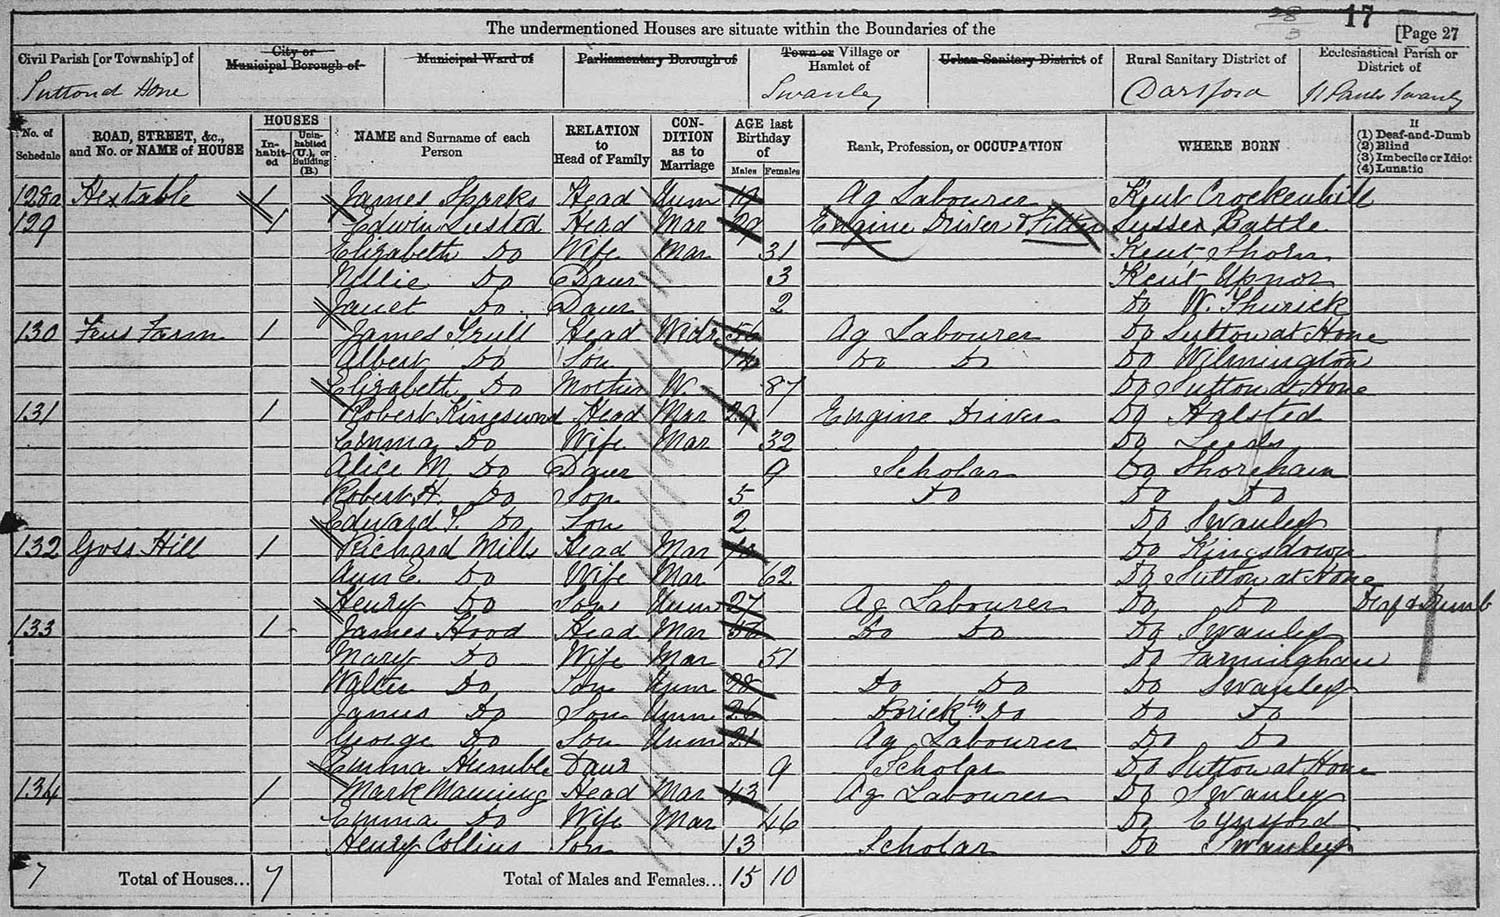 28
3
17
[Page 27
The undermentioned Houses are situate within the Boundaries of the
Civil Parish [or Township] of
City or Municipal Borough of
Municipal Ward of
Parliamentary Borough of
Town or Village or Hamlet of
Urban Sanitary District of
Rural Sanitary District of
Ecclesiastical Parish or District of
Hone Swanley Dartford St Pauls Swanley
No. of Schedule
ROAD, STREET, &c., and No. or NAME of HOUSE
HOUSES
Inhabited
Uninhabited (U.), or Building (B.)
NAME and Surname of each Person
RELATION to Head of Family
CONDITION as to Marriage
AGE last Birthday of
Males
Females
Rank, Profession, or OCCUPATION
WHERE BORN
If
(1) Deaf-and-Dumb
(2) Blind
(3) Imbecile or Idiot
(4) Lunatic
128a Hextable 1 James Sparks Head Unm 19 Ag Labourer Kent Crockenhill
129 1 Edwin Lusted Head Mar 29 Engine Driver & Fitter Sussex Battle
Elizabeth Do Wife Mar 31 Kent
Nellie Do Daur 3 Kent Upnor
Janet Do Daur 2 Do W.
130 Farm 1 James Head Widr Ag Labourer Do Sutton at Hone
Albert Do Son Do Do Do Wilmington
Elizabeth Do Mother W. 87 Do Sutton at Hone
131 1 Robert Kingswood Head Mar 29 Engine Driver Do Halsted
Emma Do Wife Mar 32 Do Leeds
Alice M. Do Daur 9 Scholar Do Shoreham
Robert H. Do Son 5 Do Do Do
Edward Do Son 2 Do Swanley
132 Goss Hill 1 Richard Mills Head Mar Do Kingsdown
Ann E. Do Wife Mar 62 Do Sutton at Hone
Henry Do Son Unm 27 Ag Labourer Do Do Deaf & Dumb
133 1 James Hood Head Mar Do Do Do Swanley
Mary Do Wife Mar 51 Do Farmingham
Walter Do Son Unm 28 Do Do Do Swanley
James Do Son Unm 26 Do Do Do
George Do Son Unm 21 Ag Labourer Do Do
Emma Humble Daur 9 Scholar Do Sutton at Hone
134 1 Mark Manning Head Mar 43 Ag Labourer Do Swanley
Emma Do Wife Mar 46 Do Eynsford
Henry Collins Son 13 Scholar Do Swanley
7 Total of Houses... 7 Total of Males and Females... 15 10